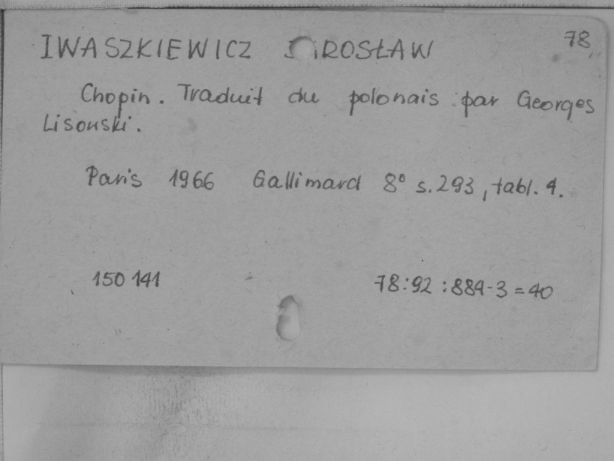 78
IWASZKIEWICZ
Chopin. Traduit du polonais par Georges
Lisowski.
Paris 1966 Gallimard 8° s.293, tabl. 4.
150 141
78:92 :884-3 = 40